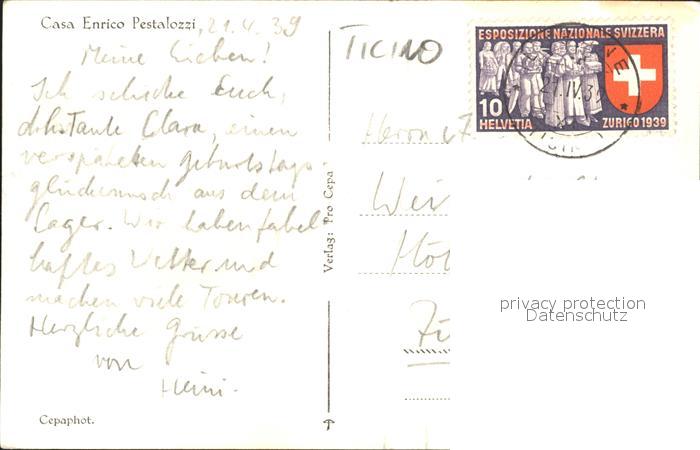 Casa Enrico Pestalozzi, 21.4.39
Meine Lieben!
Ich schicke Euch,
Tante Clara, einen
verspäteten Geburtstags-
glückwunsch aus dem
Lager. Wir haben fabel-
haftes Wetter und
machen viele Touren.
Herzliche Grüsse
von
Heini.
Cepaphot.
Verlag: Pro Cepa
TICINO
ESPOSIZIONE NAZIONALE SVIZZERA
10
HELVETIA
ZURIGO 1939
21.IV.39
Herrn
privacy protection
Datenschutz